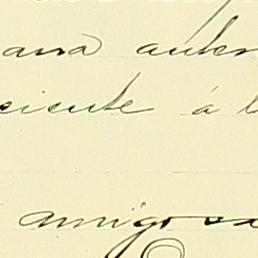 ana anter
ciente á l
amigo